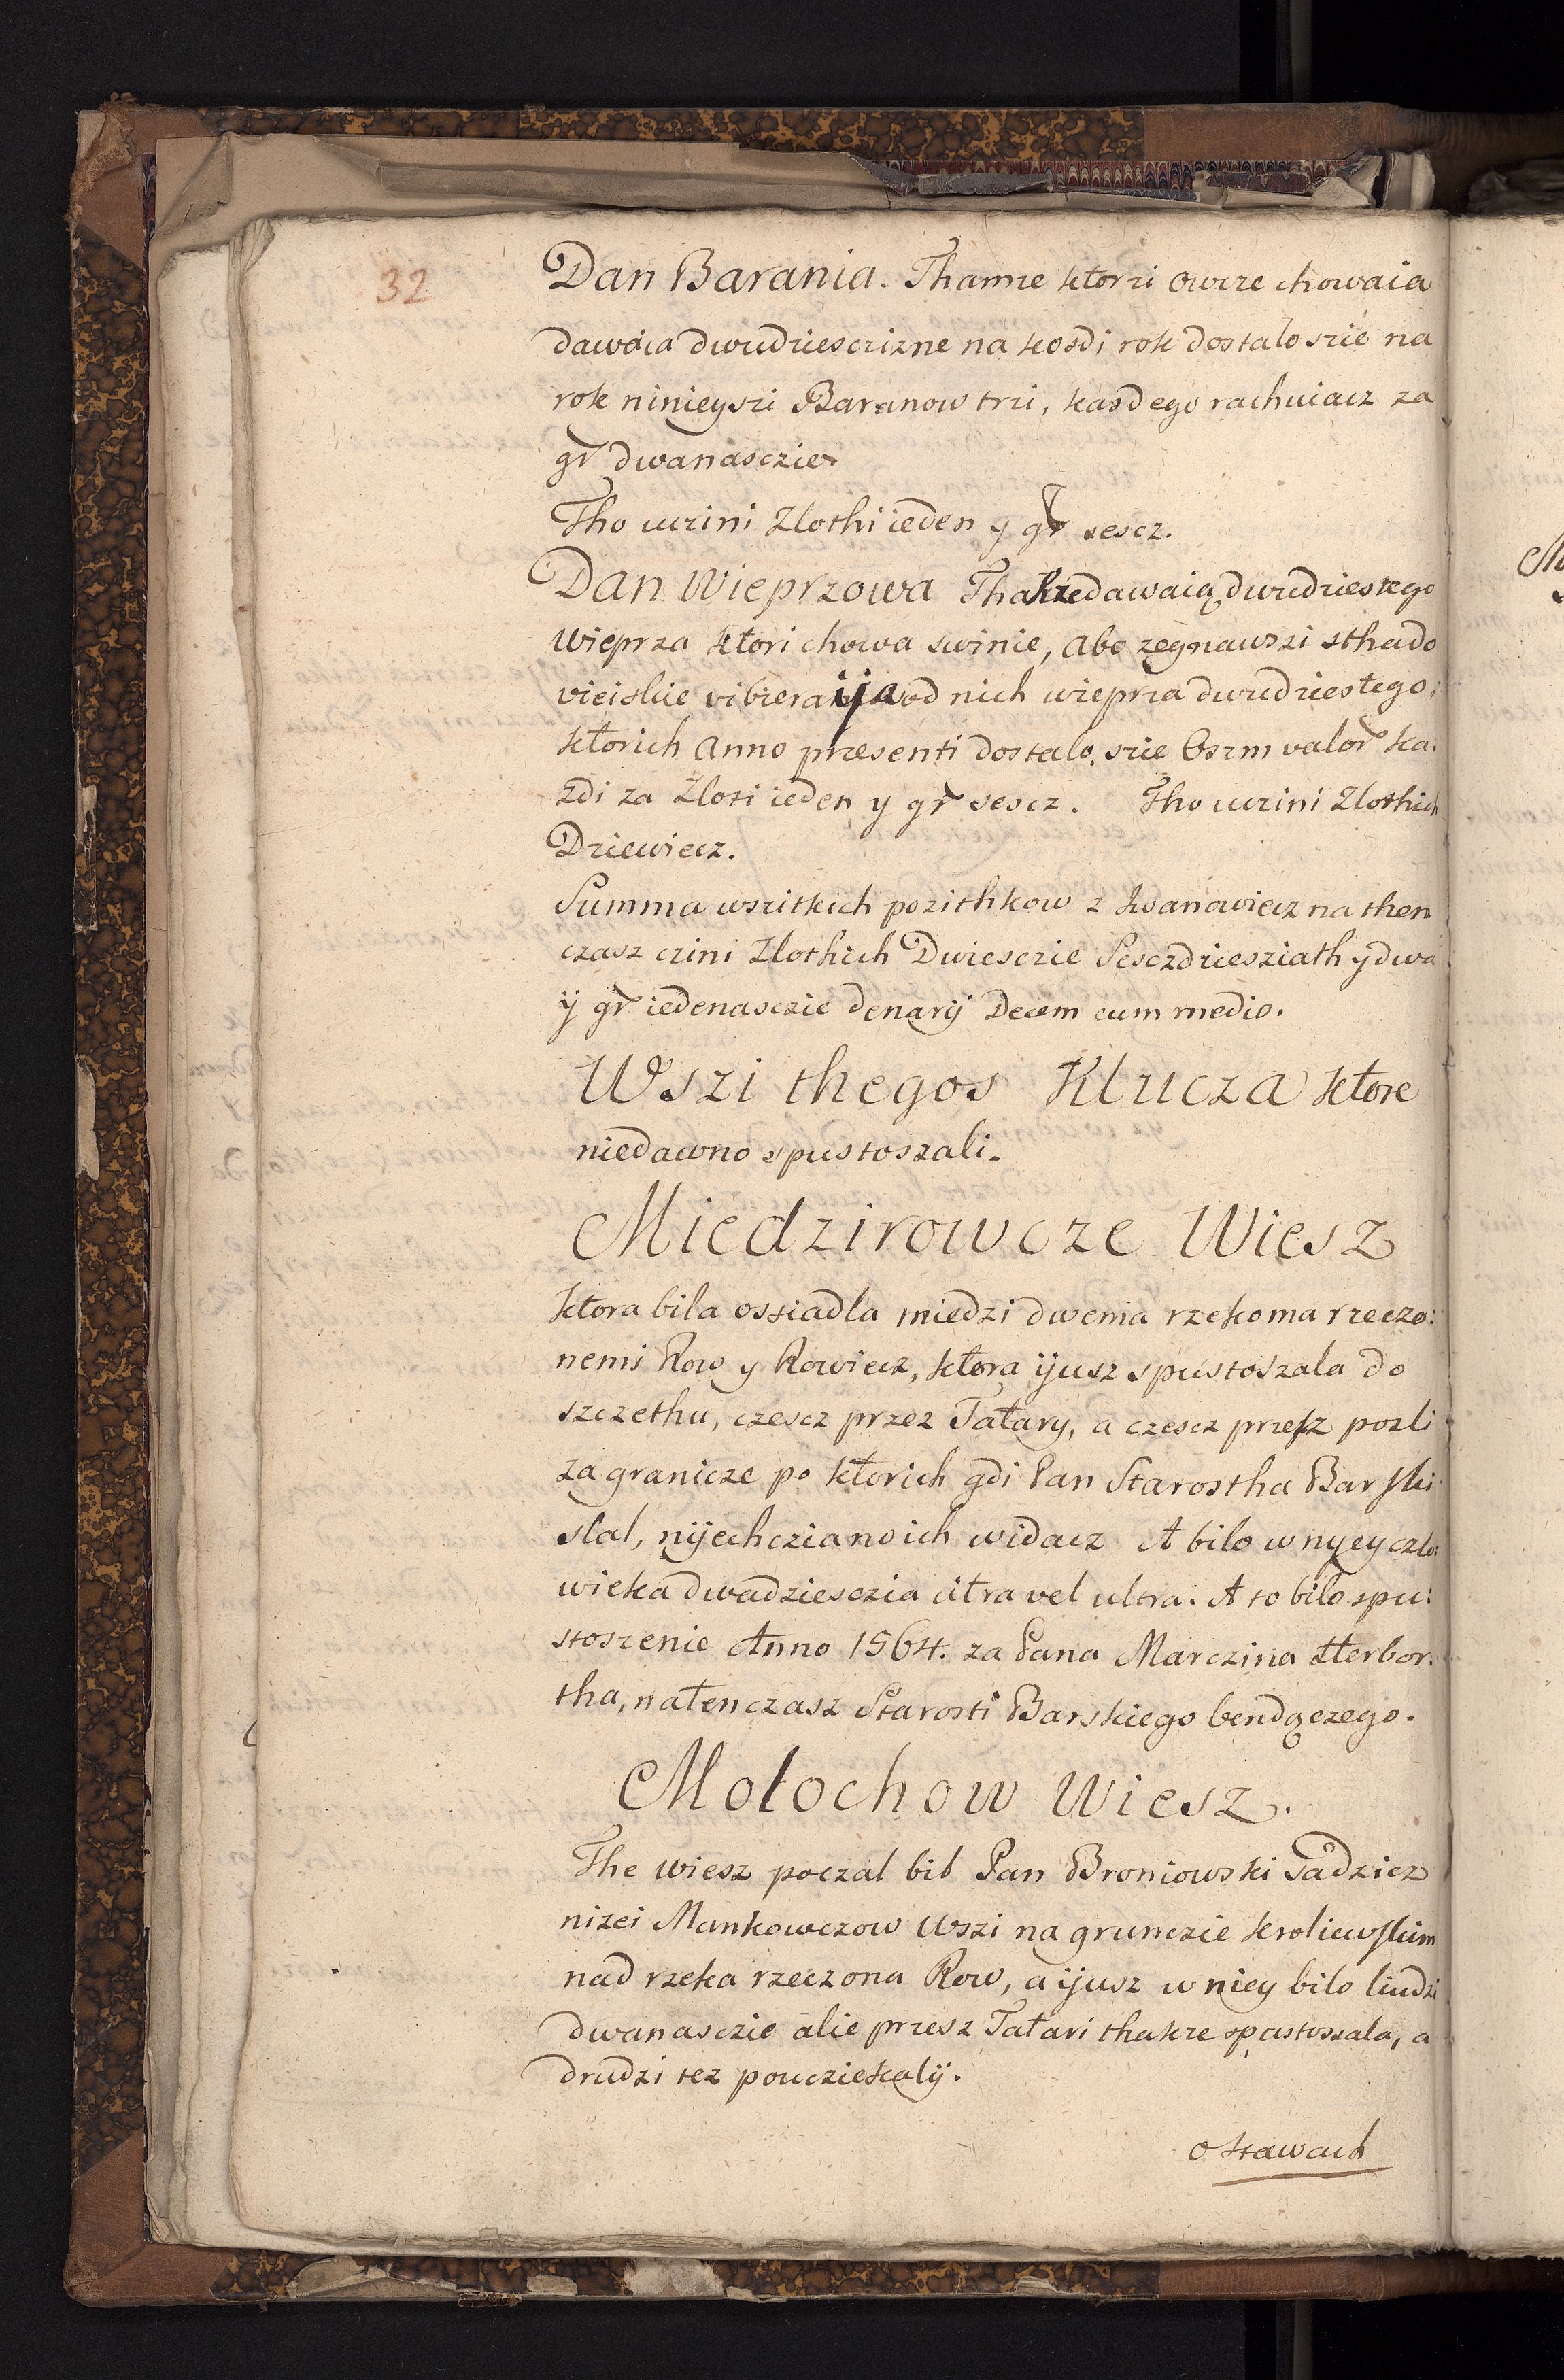 32
Dan Barania. Thamze ktorzi owcze chowaia
dawaia dwudziesczizne na kosdi rok dostalo szie na
rok ninieyszi Baranow trzi, kasdego rachuiacz za
gr dwanasczie.
Tho uczini Zlothi ieden y gr sescz.
Dan Wieprzowa Thakze dawaią dwudziestego
wieprza ktori chowa swinie, Abo zegnawszi sthado
vieiskie vibieraija od nich wieprza dwudziestego;
ktorich Anno presenti dostalo szie Oszm valor ka:
zdi za Zloti ieden y gr sescz. Tho uczini Zlothich
Dziewiecz.
Summa wszitkich pozithkow z Iwanowiecz na then
czasz czini Zlothich Dwiesczie Sesczdziesziath y dwa
ÿ gr iedenasczie denarÿ Decem cum medio.
Wszi thegos Klucza ktore
niedawno spustoszali.
Miedzirowcze Wiesz
ktora bila ossiadla miedzi dwema rzekoma rzeczo:
nemi Row y Rowiecz, ktora ijusz spustoszala do
szczethu, czescz przez Tatary, a czescz przesz pozli
za granicze po ktorich gdi Pan Starostha Barski
slal, nijechcziano ich widacz A bilo w nyey czlo:
wieka dwadziesczia citra vel ultra. A to bilo spu:
stoszenie Anno 1564. za Pana Marczina Herbor:
tha, natenczasz Starosti Barskiego bendączego.
Molochow Wiesz.
The wiesz poczal bil Pan Broniowski Sadzicz
nizei Mankowczow Wszi na grunczie kroliewskim
nad rzeka rzeczona Row, a ijusz w niey bilo liudzi
dwanasczie alie przesz Tatari thakze spustoszala, a
drudzi tez poucziekalÿ.
o stawach